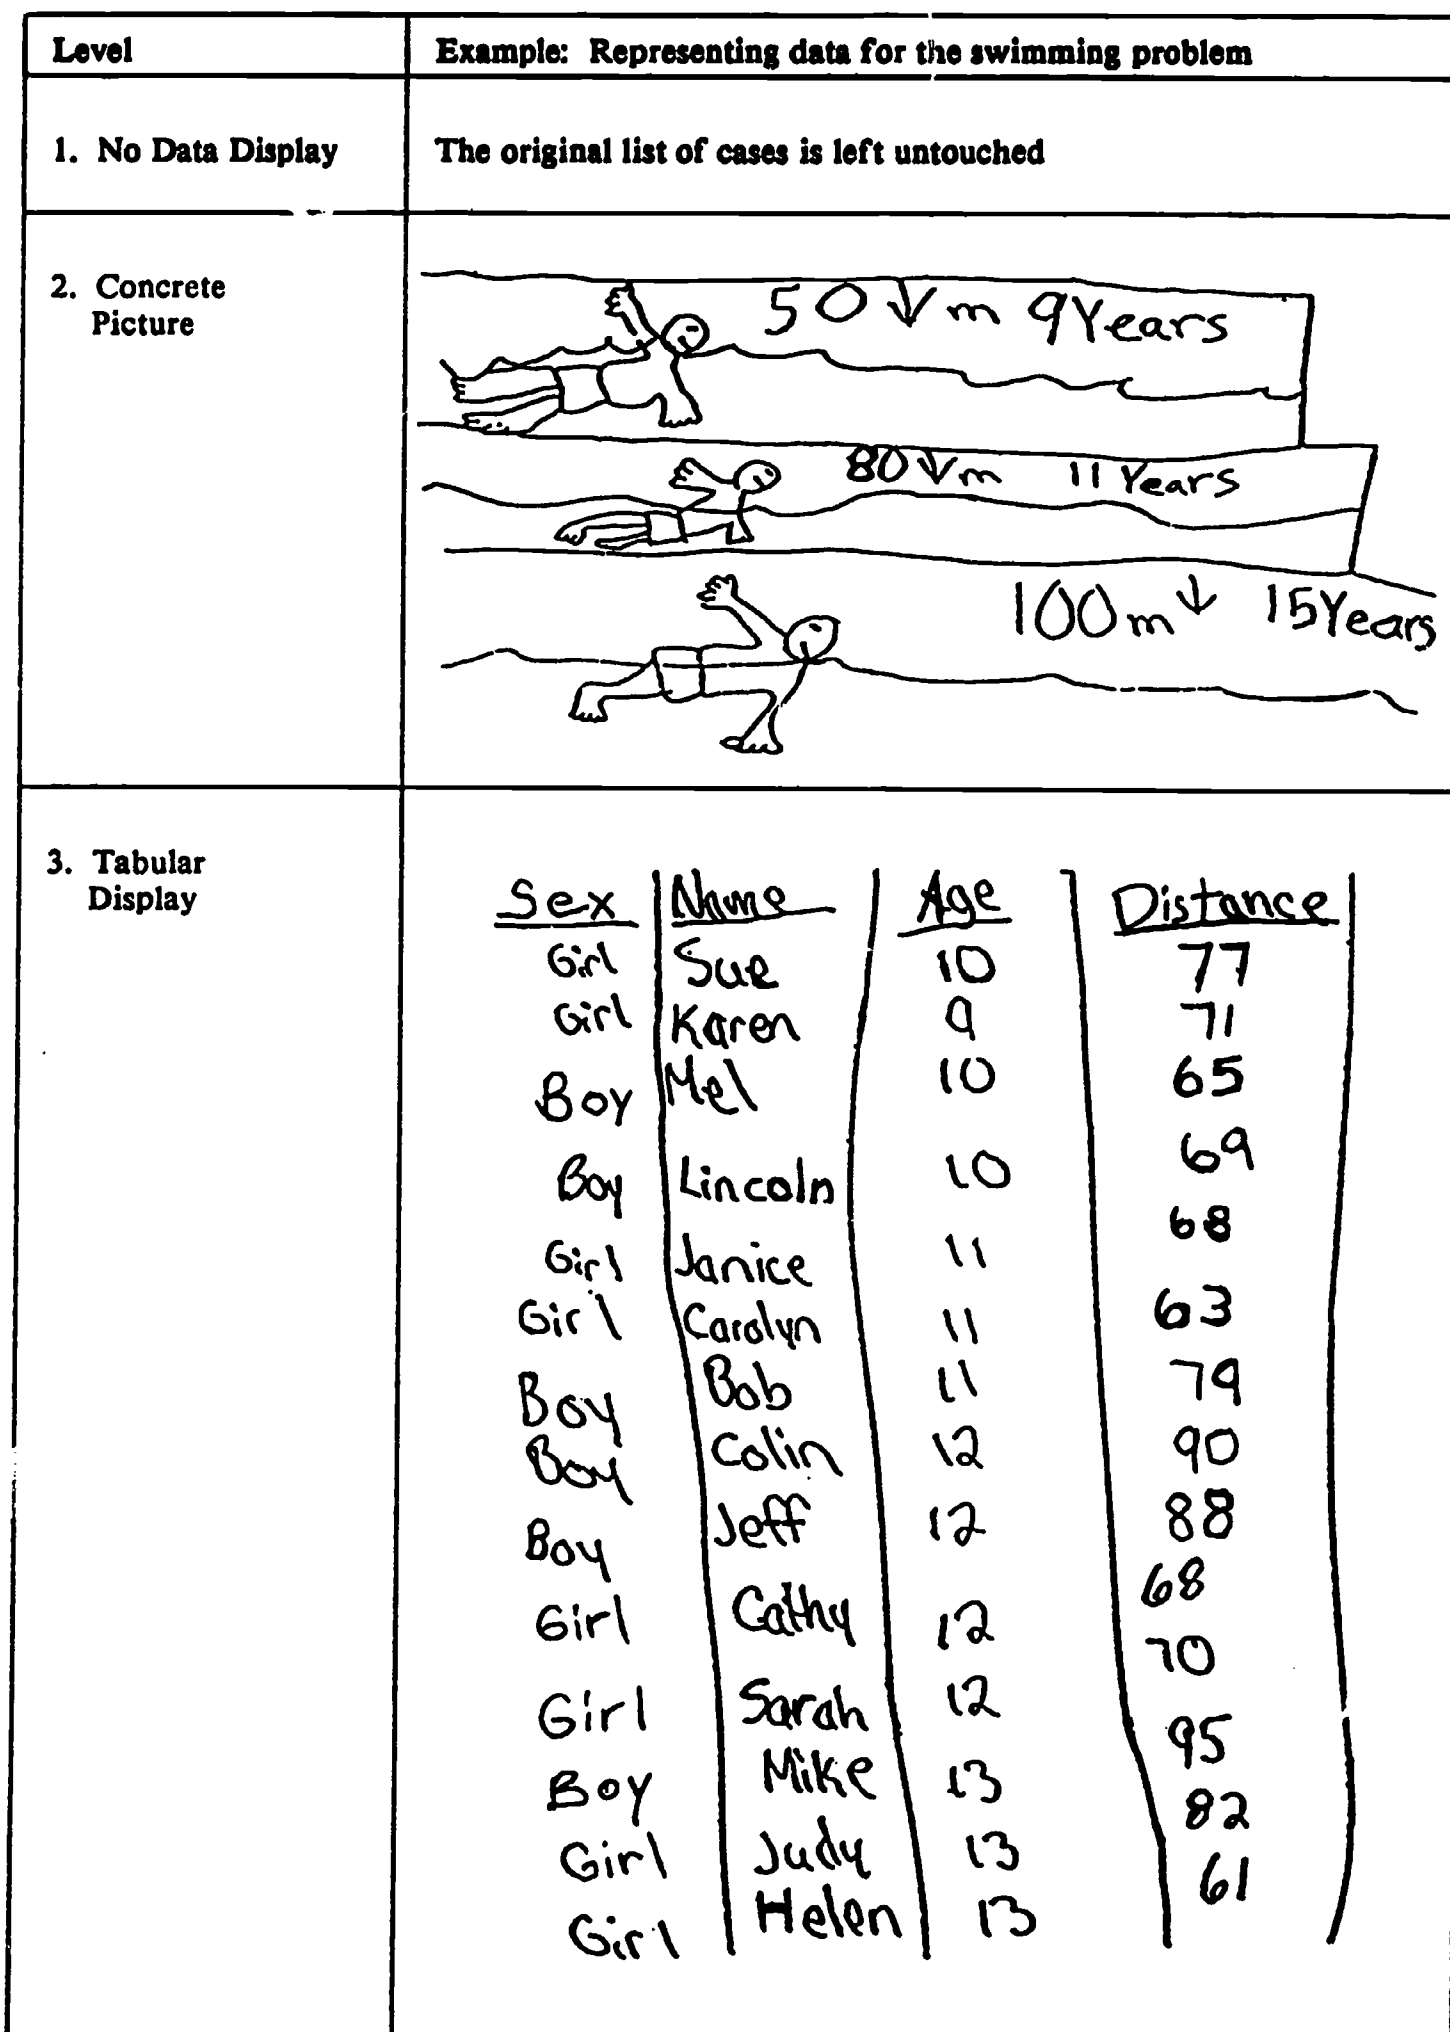 Level Example: Representing data for the swimming problem
1. No Data Display The original list of cases is left untouched
2. Concrete
Picture
50 ↓ m 9 Years
80 ↓ m 11 Years
100 m ↓ 15 Years
3. Tabular
Display
Sex Name Age Distance
Girl Sue 10 77
Girl Karen 9 71
Boy Mel 10 65
Boy Lincoln 10 69
Girl Janice 11 68
Girl Carolyn 11 63
Boy Bob 11 79
Boy Colin 12 90
Boy Jeff 12 88
Girl Cathy 12 68
Girl Sarah 12 70
Boy Mike 13 95
Girl Judy 13 82
Girl Helen 13 61